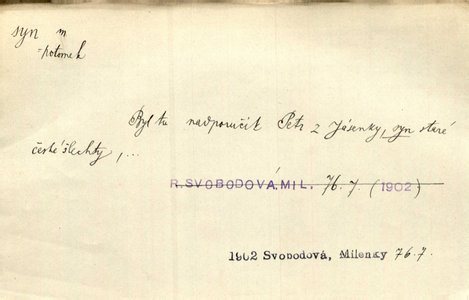 syn m
-potomek
Byl tu nadporučík Petr z Jásenky, syn staré
české šlechty, ...
R. SVOBODOVÁ, MIL. 76.7. (1902)
1902 Svobodová, Milenky 76.7.